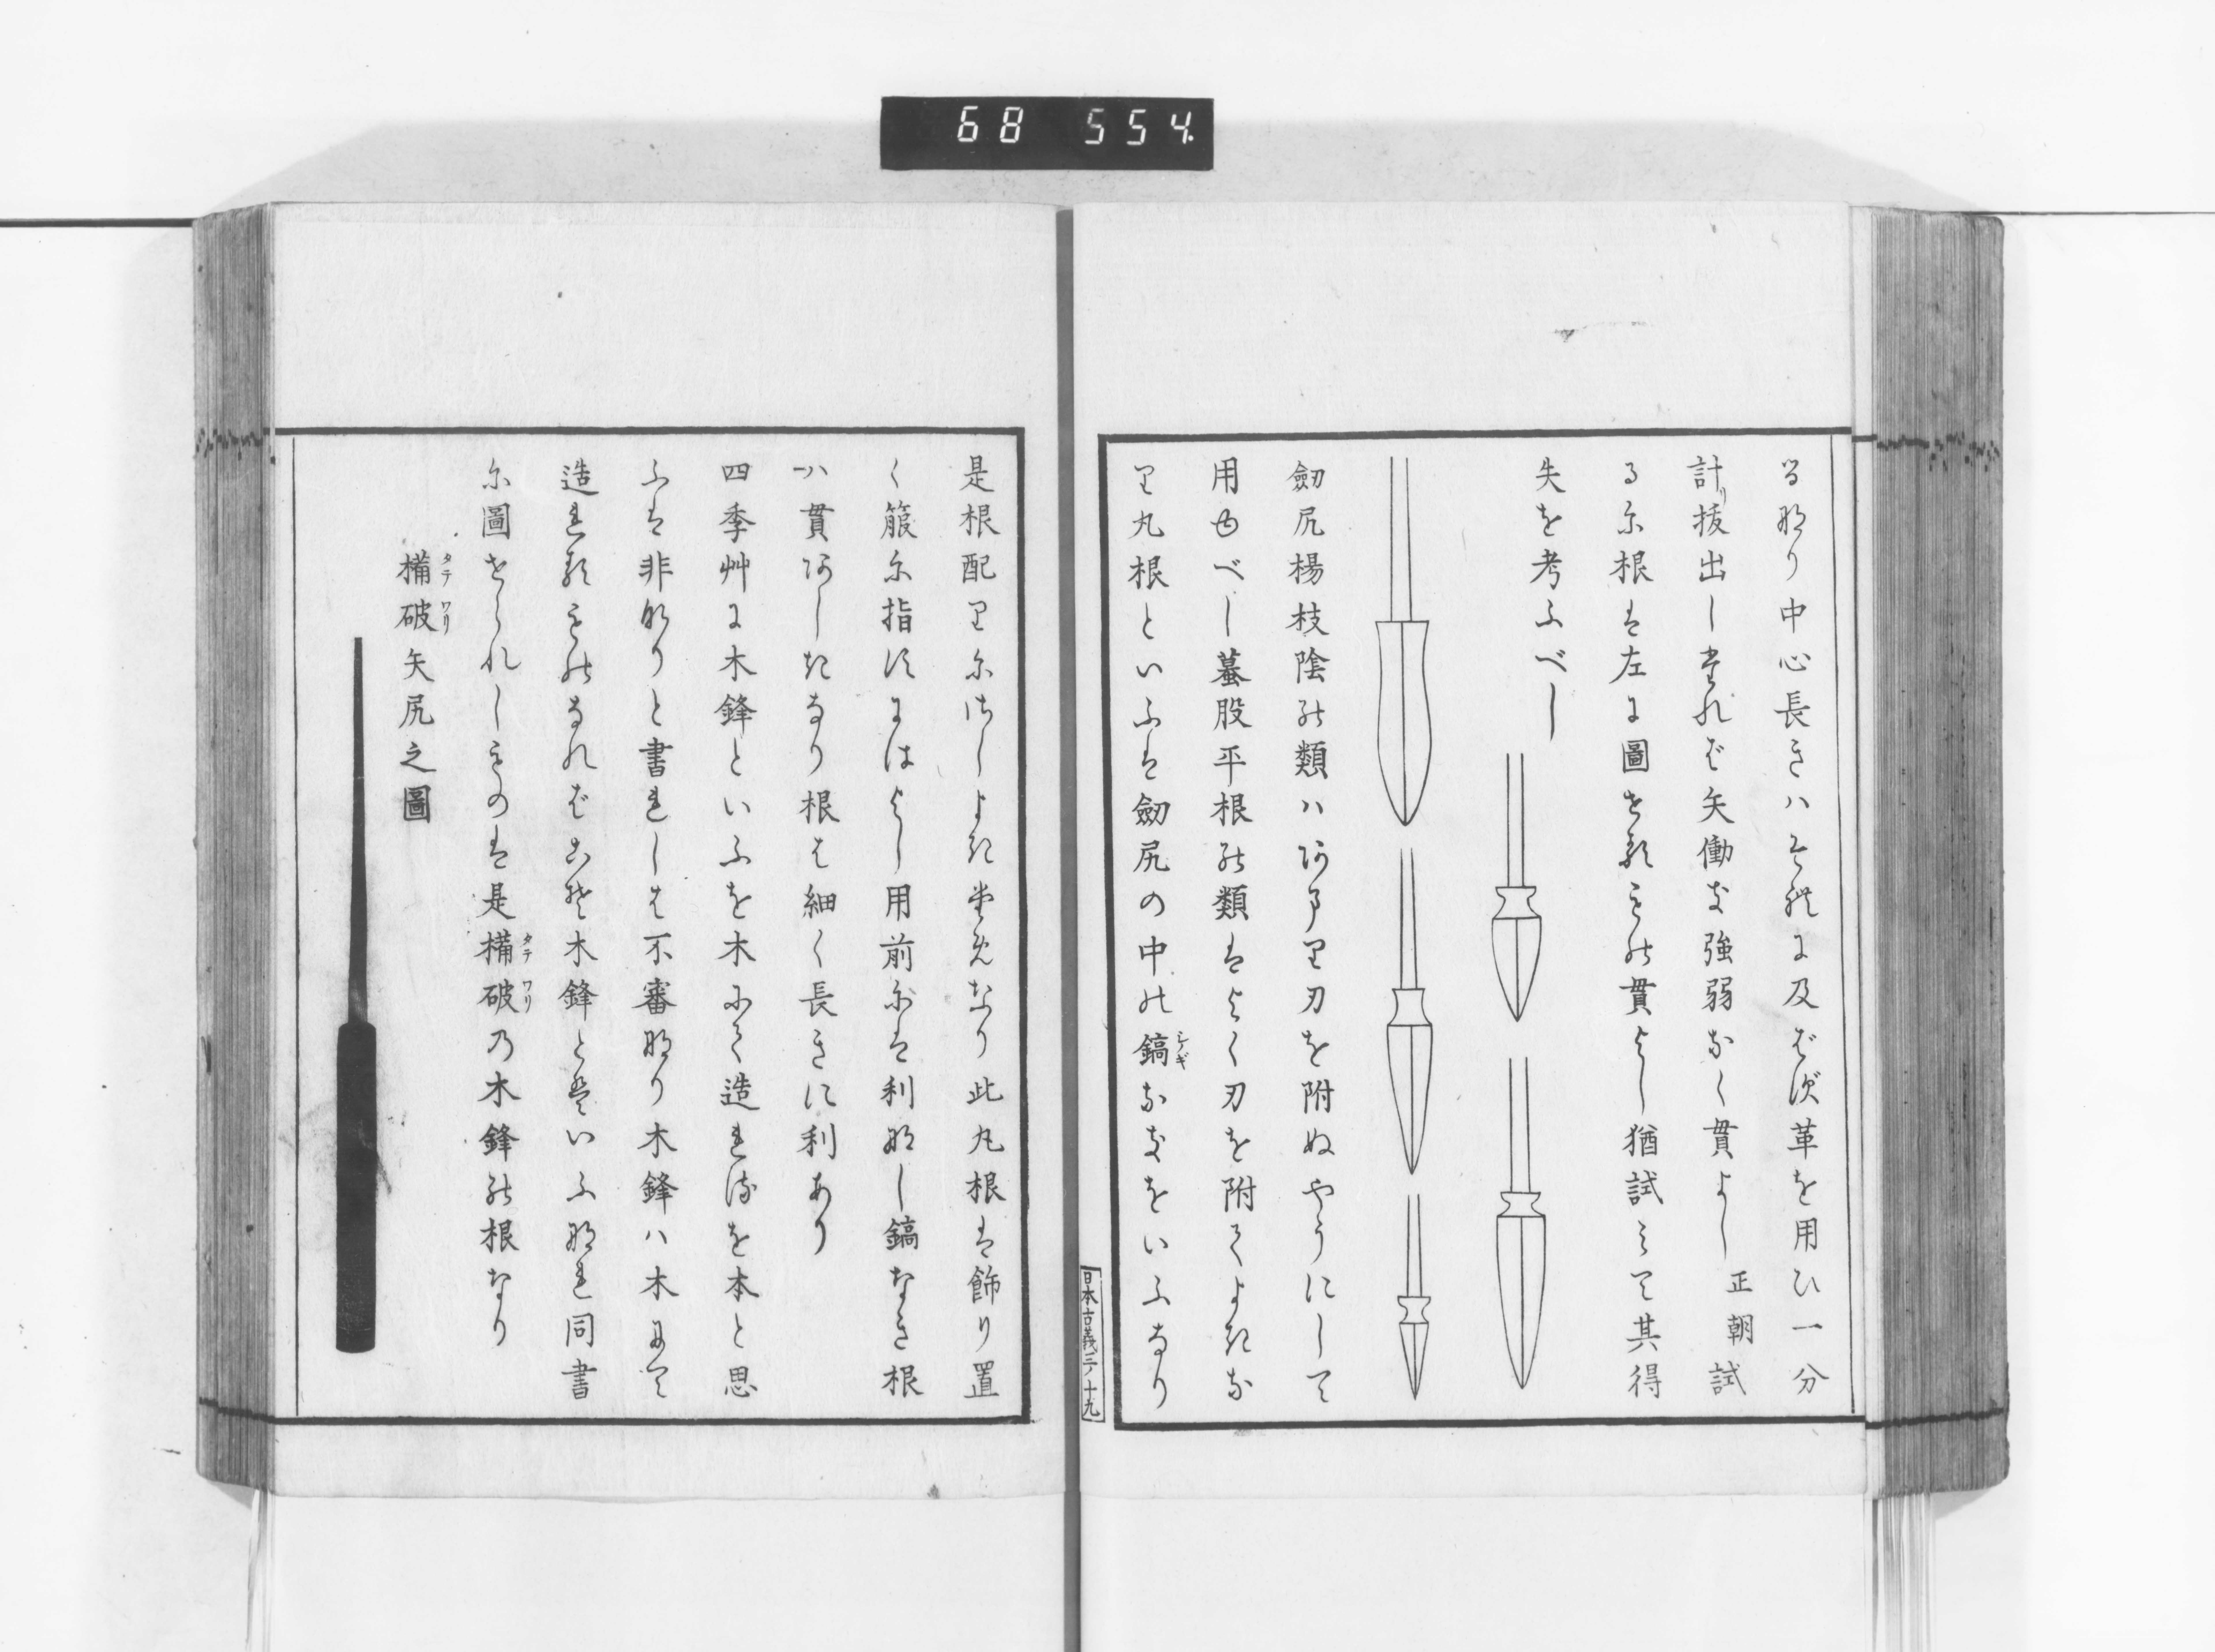 68 554
るなり中心長きハそれに及ばず革を用ひ一分
計り抜出しされバ矢働き強弱なく貫よし正朝試
るに根は左に圖せるもの貫よし猶試ミて其得
失を考ふべし
劔尻楊枝陰の類ハあまり刃を附ぬやうにして
用ゆべし蟇股平根の類はよく刃を附てよきな
り丸根といふは劔尻の中の鎬シノギなきをいふなり
日本古義三ノ十九
是根配りにさしよきためなり此丸根は飾り置
く箙に指すにはよし用前には利なし鎬なき根
ハ貫あしきなり根は細く長きに利あり
四季艸に木鋒といふを木にて造れるを本と思
ふは非なりと書れしは不審なり木鋒ハ木にて
造れるものなればこそ木鋒とはいふなれ同書
に圖せられしものは是楯破タテワリの木鋒の根なり
楯破タテワリ矢尻之圖